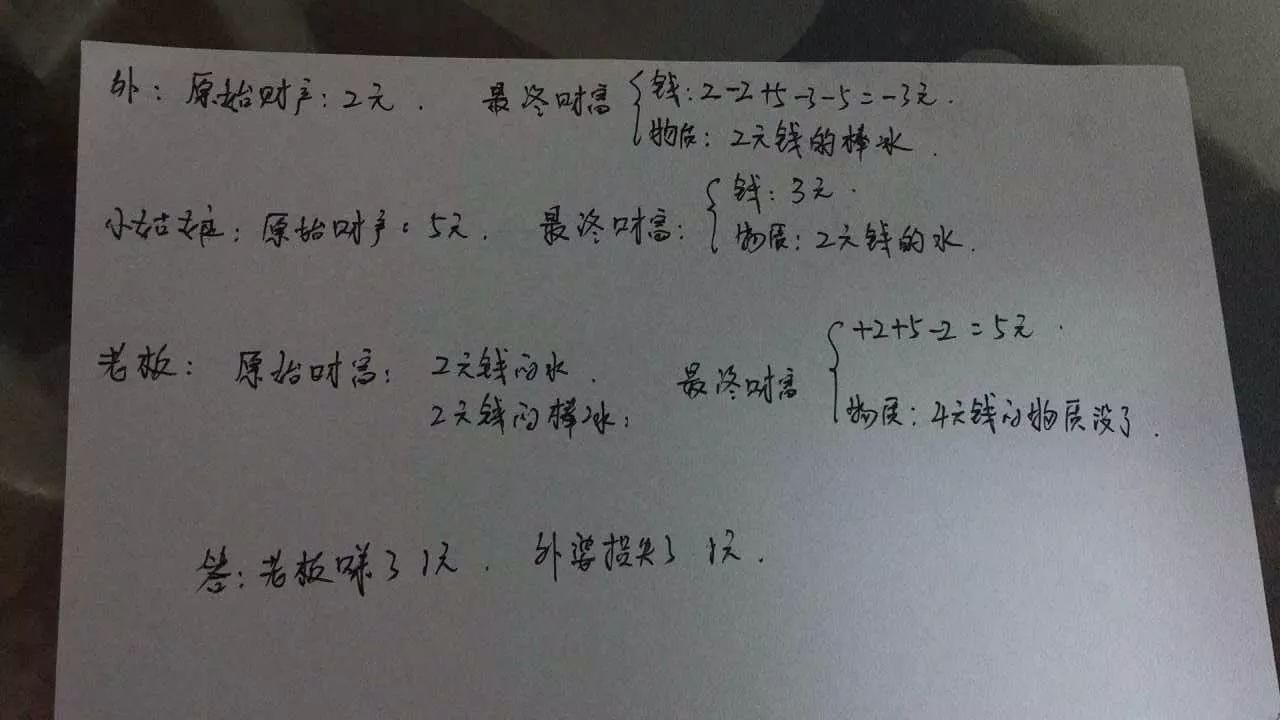 外: 原始财产: 2元. 最终财富 { 钱: 2-2+5-3-5=-3元.
物质: 2元钱的棒冰.
小姑娘: 原始财产: 5元. 最终财富: { 钱: 3元.
物质: 2元钱的水.
老板: 原始财富: 2元钱的水. 最终财富 { +2+5-2=5元.
2元钱的棒冰; 物质: 4元钱的物质没了.
答: 老板赚了1元. 外婆损失了1元.